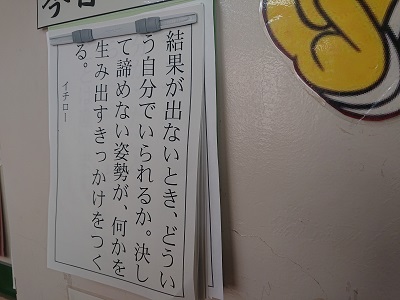 今日
結果が出ないとき、どうい
う自分でいられるか。決し
て諦めない姿勢が、何かを
生み出すきっかけをつく
る。
イチロー